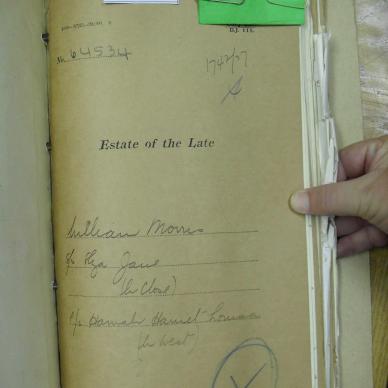 D.J. 111.
No. 64534
1742/27
A
Estate of the Late
William Morris
s/s Eliza Jane
(b Close)
s/s Hannah Harriet Louisa
(b West)